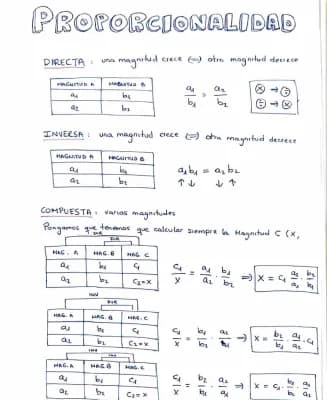 PROPORCIONALIDAD
DIRECTA: una magnitud crece ⇔ otra magnitud decrece
MAGNITUD A | MAGNITUD B
a1 | b1
a2 | b2
a1/b1 = a2/b2
× → ÷
÷ → ×
INVERSA: una magnitud crece ⇔ otra magnitud decrece
MAGNITUD A | MAGNITUD B
a1 | b1
a2 | b2
a1 b1 = a2 b2
↑ ↓ ↓ ↑
COMPUESTA: varias magnitudes
Pongamos que tenemos que calcular siempre la Magnitud C (x,
DIR
DIR
MAG. A | MAG. B | MAG. C
a1 | b1 | c1
a2 | b2 | c2=x
c1/x = a1/a2 · b1/b2 ⇒ x = c1 · a2/a1 · b2/b1
INV
DIR
MAG. A | MAG. B | MAG. C
a1 | b1 | c1
a2 | b2 | c2=x
INV
INV
MAG. A | MAG. B | MAG. C
a1 | b1 | c1
a2 | b2 | c2=x